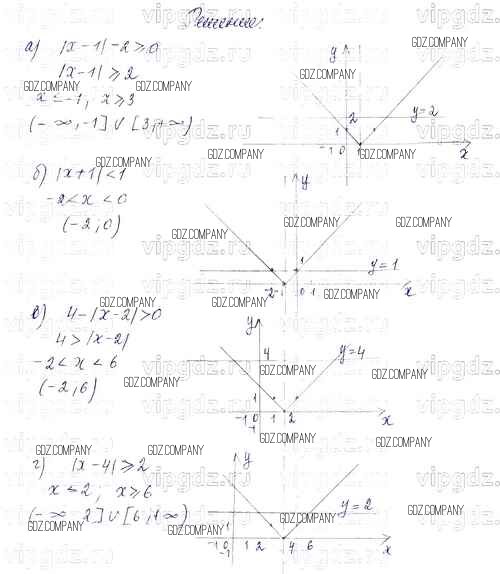 Решение:
а) |x-1|-2≥0
|x-1|≥2
x≤-1, x≥3
(-∞,-1]∪[3,+∞)
y
2
y=2
1
-1 0 1
x
б) |x+1|<1
-2<x<0
(-2,0)
y
1
y=1
-2 -1 0 1
x
в) 4-|x-2|>0
4>|x-2|
-2<x<6
(-2,6)
y
4
y=4
1
-1 0 1 2
-1
x
г) |x-4|≥2
x≤2; x≥6
(-∞ 2]∪[6,+∞)
y
y=2
1
-1 0 1 2 4 6
-1
x
GDZ.COMPANY
vipgdz.ru